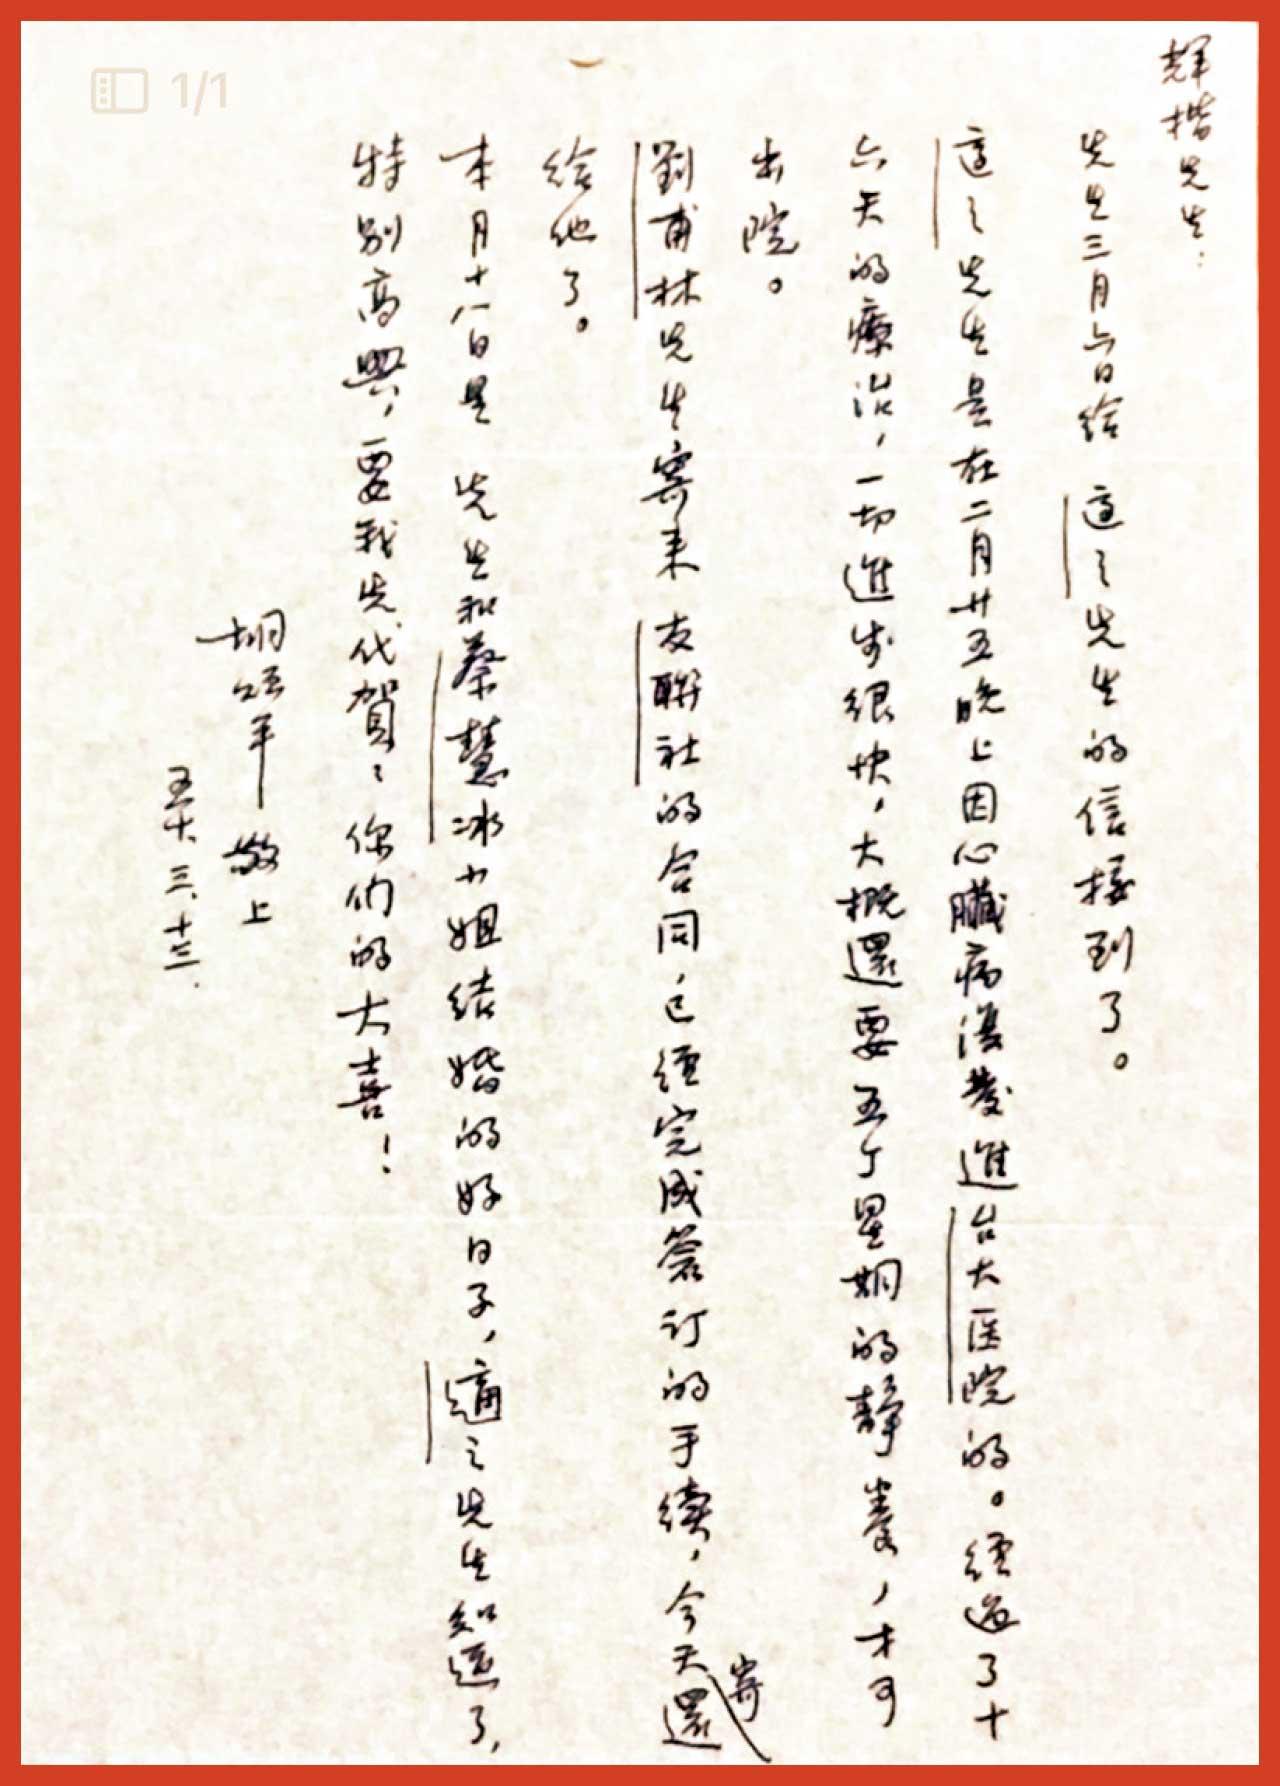 輝楷先生：
先生三月六日給 適之先生的信接到了。
適之先生是在二月廿五晚上因心臟病復發進台大医院的。經過了十
六天的療治，一切進步很快，大概還要五个星期的靜養，才可
出院。
劉甫林先生寄來 友聯社的合同，已經完成簽訂的手續，今天寄還
給他了。
本月十八日是 先生和蔡慧冰小姐結婚的好日子，適之先生知道了，
特別高興，要我先代賀賀你們的大喜！
胡頌平 敬上
五十、三、十三.
1/1